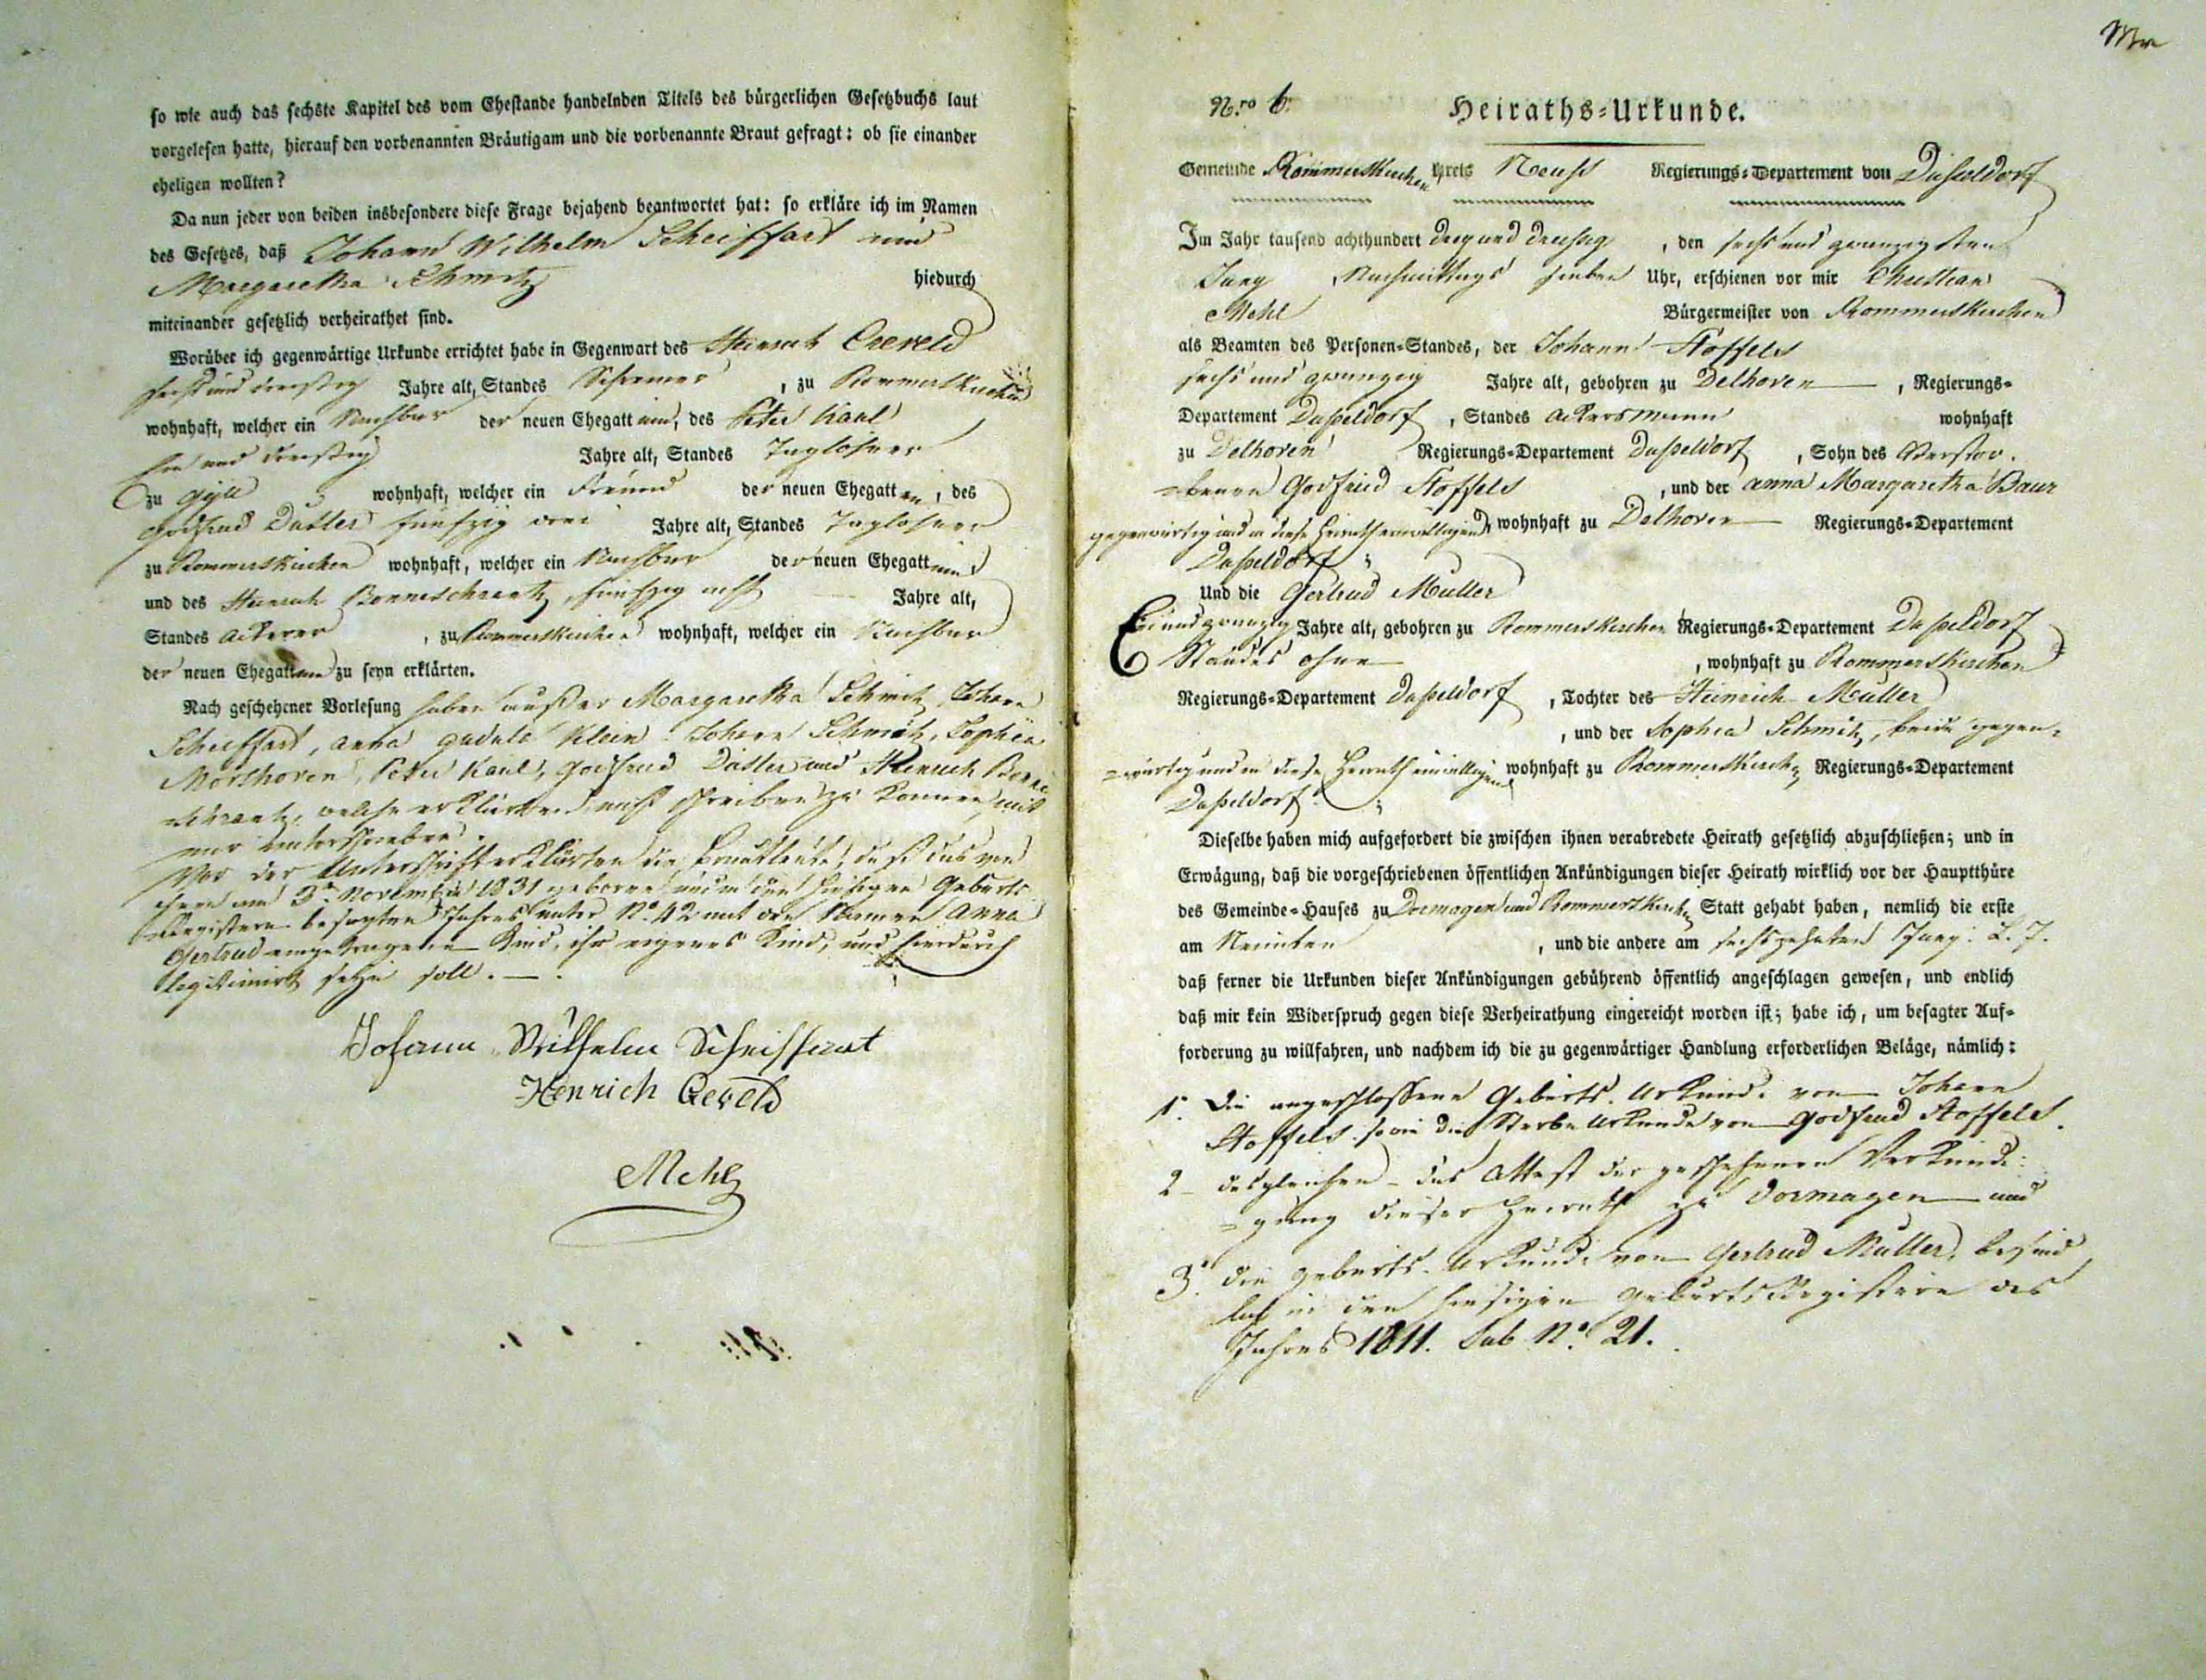 so wie auch das sechste Kapitel des vom Ehestande handelnden Titels des bürgerlichen Gesetzbuchs laut
vorgelesen hatte, hierauf den vorbenannten Bräutigam und die vorbenannte Braut gefragt: ob sie einander
eheligen wollten?
Da nun jeder von beiden insbesondere diese Frage bejahend beantwortet hat: so erkläre ich im Namen
des Gesetzes, daß Johann Wilhelm Scheiffart und
Margaretha Schmitz hiedurch
miteinander gesetzlich verheirathet sind.
Worüber ich gegenwärtige Urkunde errichtet habe in Gegenwart des Heinrich Creveld
sechs und dreissig Jahre alt, Standes Schreiner, zu Rommerskirchen
wohnhaft, welcher ein Nachbar der neuen Ehegattinn, des Peter Kaul
ein und dreissig Jahre alt, Standes Taglohner
zu Gill wohnhaft, welcher ein Freund der neuen Ehegatten, des
Godfried Dutter fünfzig drei Jahre alt, Standes Taglohner
zu Rommerskirchen wohnhaft, welcher ein Nachbar der neuen Ehegattinn
und des Heinrich Bonneschrantz, fünfzig acht Jahre alt,
Standes Ackerer, zu Rommerskirchen wohnhaft, welcher ein Nachbar
der neuen Ehegattinn zu seyn erklärten.
Nach geschehener Vorlesung haben außer Margaretha Schmitz, Johann
Scheiffart, Anna Gudula Klein Johann Schmitz, Sophia
Morshoven, Peter Kaul, Godfried und Henrich Bonne
schrantz, welche erklärten nicht schreiben zu konnen, mit
mir unterschrieben.
Vor der Unterschrift erklärten die Brautleute, daß das von
ihnen am 3n November 1831 geborene und in den hiesigen Geburts
Registern besagten Jahres unter No 42 mit den Namen Anna
Gertrud eingetragene Kind, ihr eigenes Kind, und hierdurch
legitimirt seyn soll.
Johann Wilhelm Scheiffart
Henrich Creveld
Mehl
Nro 6. Heiraths-Urkunde.
Gemeinde Rommerskirchen Kreis Neuss Regierungs-Departement von Dusseldorf
Im Jahr tausend achthundert drey und dreissig, den sechs und zwanzigsten
Juny Nachmittags sieben Uhr, erschienen vor mir Christian
Mehl Bürgermeister von Rommerskirchen
als Beamten des Personen-Standes, der Johann Stoffels
sechs und zwanzig Jahre alt, gebohren zu Delhoven, Regierungs-
Departement Dusseldorf, Standes Ackersmann wohnhaft
zu Delhoven Regierungs-Departement Dusseldorf, Sohn des Verstor-
benen Godfried Stoffels, und der Anna Margaretha Baur
gegenwärtig und in diese Heirath einwilligend, wohnhaft zu Delhoven Regierungs-Departement
Dusseldorf;
Und die Gertrud Muller
Ein und zwanzig Jahre alt, gebohren zu Rommerskirchen Regierungs-Departement Dusseldorf
Standes ohne, wohnhaft zu Rommerskirchen
Regierungs-Departement Dusseldorf, Tochter des Heinrich Muller
, und der Sophia Schmitz, beide gegen-
wärtig und in diese Heirath einwilligend wohnhaft zu Rommerskirchen Regierungs-Departement
Dusseldorf;
Dieselbe haben mich aufgefordert die zwischen ihnen verabredete Heirath gesetzlich abzuschließen; und in
Erwägung, daß die vorgeschriebenen öffentlichen Ankündigungen dieser Heirath wirklich vor der Hauptthüre
des Gemeinde-Hauses zu Dormagen und Rommerskirchen Statt gehabt haben, nemlich die erste
am Neunten, und die andere am sechszehnten Juny l. J.
daß ferner die Urkunden dieser Ankündigungen gebührend öffentlich angeschlagen gewesen, und endlich
daß mir kein Widerspruch gegen diese Verheirathung eingereicht worden ist; habe ich, um besagter Auf-
forderung zu willfahren, und nachdem ich die zu gegenwärtiger Handlung erforderlichen Beläge, nämlich:
1. Die angeschlossene Geburts-Urkunde von Johann
Stoffels sowie die Sterbe Urkunde von Godfried Stoffels.
2 - desgleichen - das Attest der geschehenen Verkündi-
gung dieser Heirath zu Dormagen und
3. die Geburts-Urkunde von Gertrud Muller, befind
lich in den hiesigen Geburts Registern des
Jahres 1811. Sub No 21.